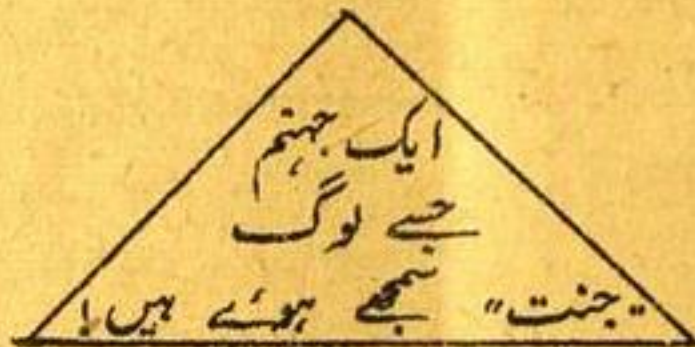 ایک جہنم
جسے لوگ
"جنت" سمجھے ہوئے ہیں!